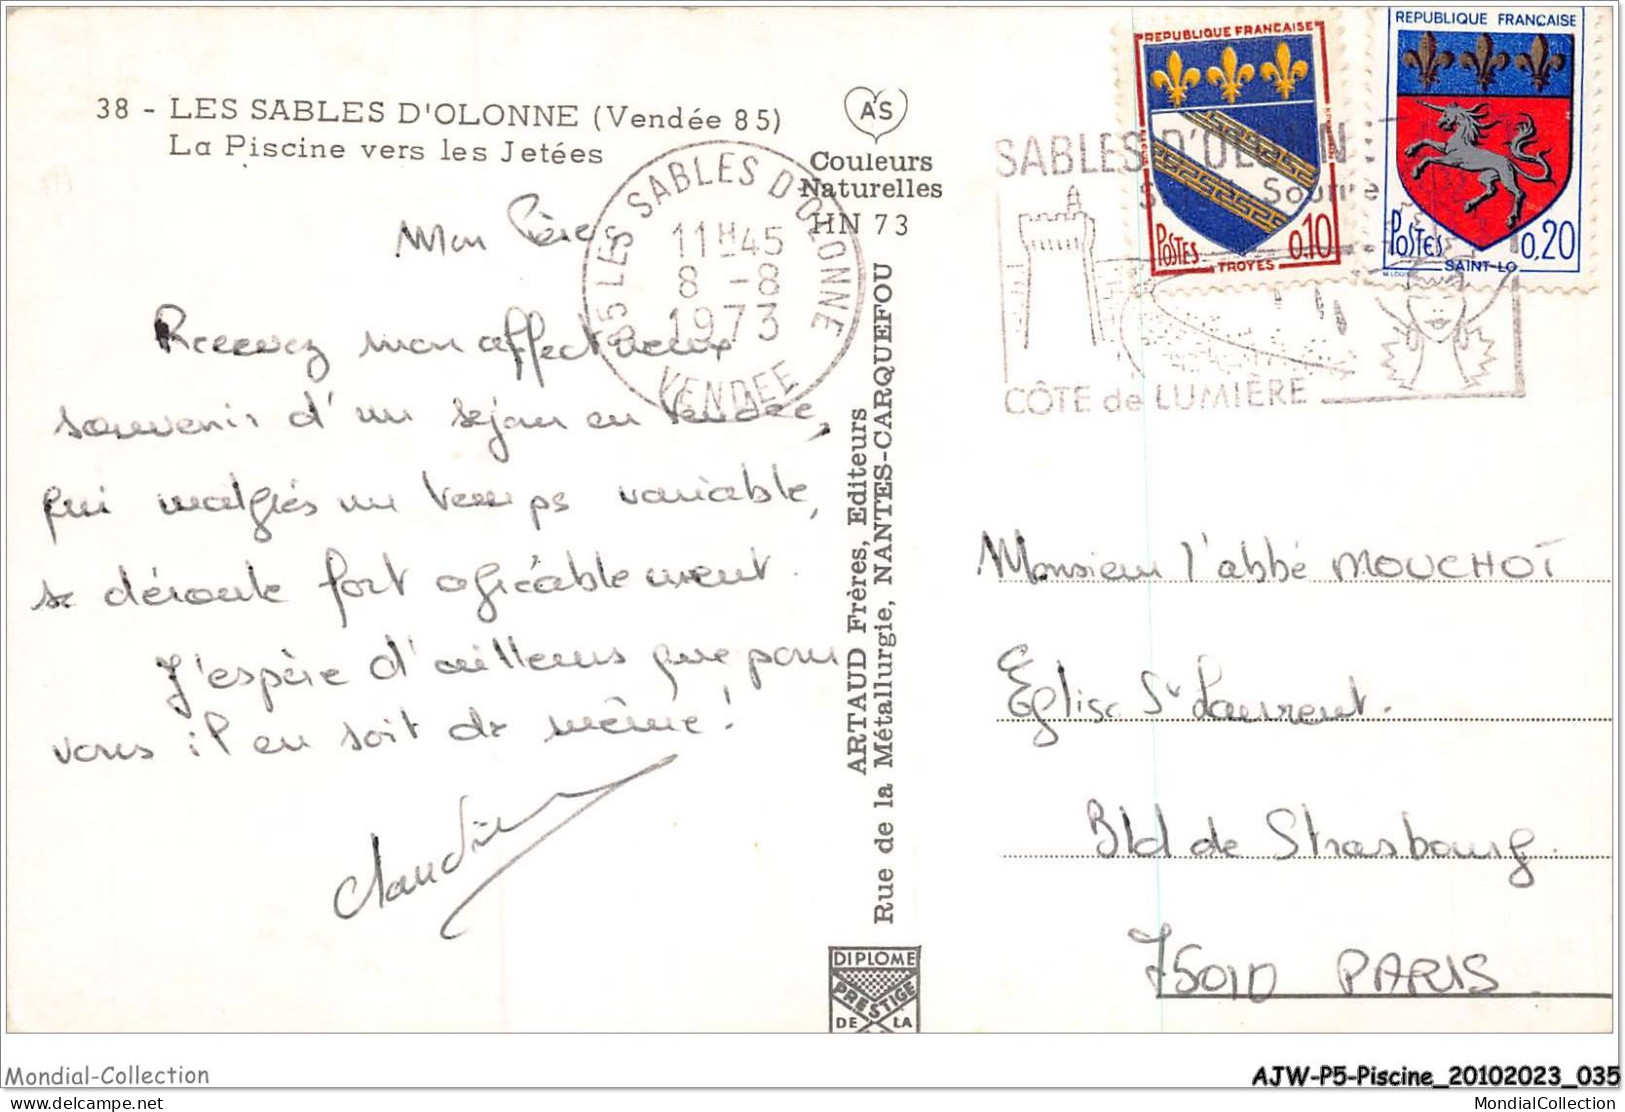 38 - LES SABLES D'OLONNE (Vendée 85)
La Piscine vers les Jetées
AS
Couleurs
Naturelles
HN 73
Mon Père
Recevez mon affectueux
souvenir d'un séjour en Vendée,
qui malgrés un temps variable,
se déroule fort agréablement.
J'espère d'ailleurs que pour
vous il en soit de même !
85 LES SABLES D'OLONNE
11H45
8 -8
1973
VENDEE
ARTAUD Frères, Editeurs
Rue de la Métallurgie, NANTES-CARQUEFOU
DIPLOME
PRESTIGE
DE LA
SABLES D'OLONNE
CÔTE de LUMIÈRE
REPUBLIQUE FRANCAISE
POSTES 0.10
TROYES
REPUBLIQUE FRANCAISE
POSTES 0.20
SAINT-LO
Monsieur l'abbé MOUCHOT
Église St Laurent.
Bld de Strasbourg.
75010 PARIS
Mondial-Collection
AJW-P5-Piscine_20102023_035
delcampe.net
MondialCollection